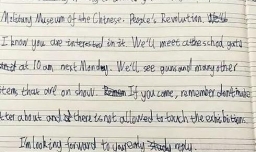 Military Museum of the Chinese People's Revolution.
I know you are interested in it. We'll meet at the school gate
at 10 am next Monday. We'll see guns and many other
items that are on show. If you come, remember don't make
litter about and there is not allowed to touch the exhibitions.
I'm looking forward to your early reply.